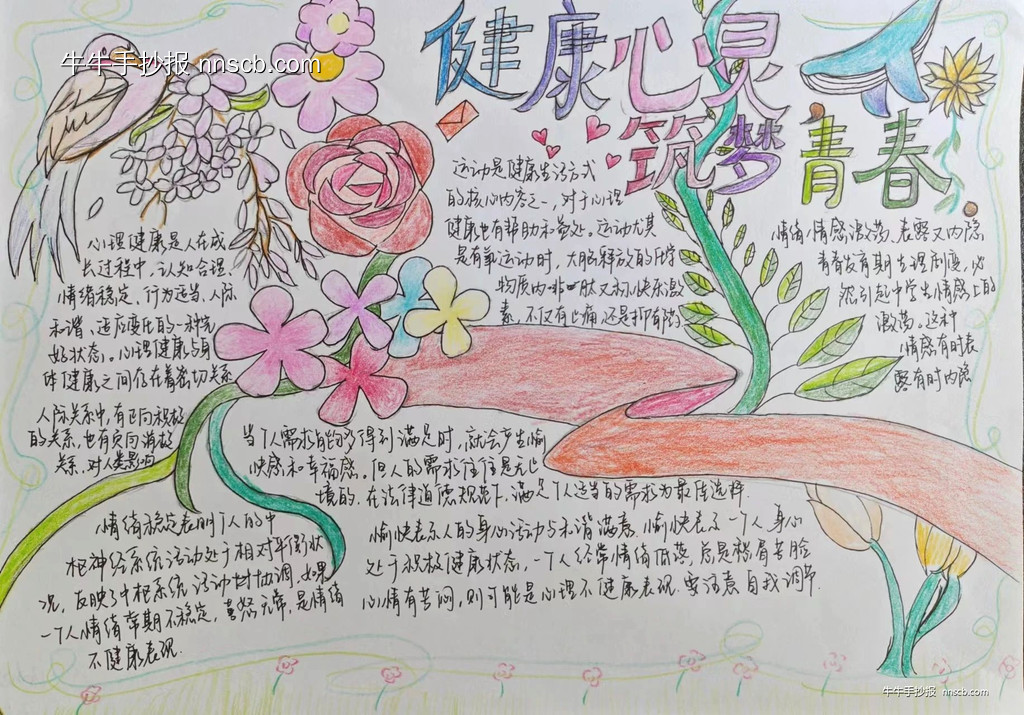 牛牛手抄报 nnscb.com
健康心灵
筑梦青春
心理健康是人在成
长过程中，认知合理、
情绪稳定、行为适当、人际
和谐、适应变化的一种完
好状态。心理健康与身
体健康之间存在着密切关系
人际关系中，有正向积极
的关系，也有负向消极
关系，对人类影响
运动是健康生活方式
的核心内容之一，对于心理
健康也有帮助和益处。运动尤其
是有氧运动时，大脑释放的化学
物质内啡肽又称快乐激
素，不仅有止痛，还是抑有
情绪情感激荡、表露又内隐
青春发育期生理剧变，必
然引起中学生情感上的
激荡。这种
情感有时表
露有时内隐
当个人需求能够得到满足时，就会产生愉
快感和幸福感。但人的需求往往是无止
境的，在法律道德规范下，满足个人适当的需求为最佳选择
情绪稳定表明个人的中
枢神经系统活动处于相对平衡状
况，反映了中枢系统活动的协调，如果
一个人情绪常期不稳定，喜怒无常，是情绪
不健康表现
愉快表示人的身心活动与和谐满意，愉快表示一个人身心
处于积极健康状态，一个人经常情绪低落，总是愁眉苦脸
心情有苦闷，则可能是心理不健康表现，要注意自我调节
牛牛手抄报 nnscb.com